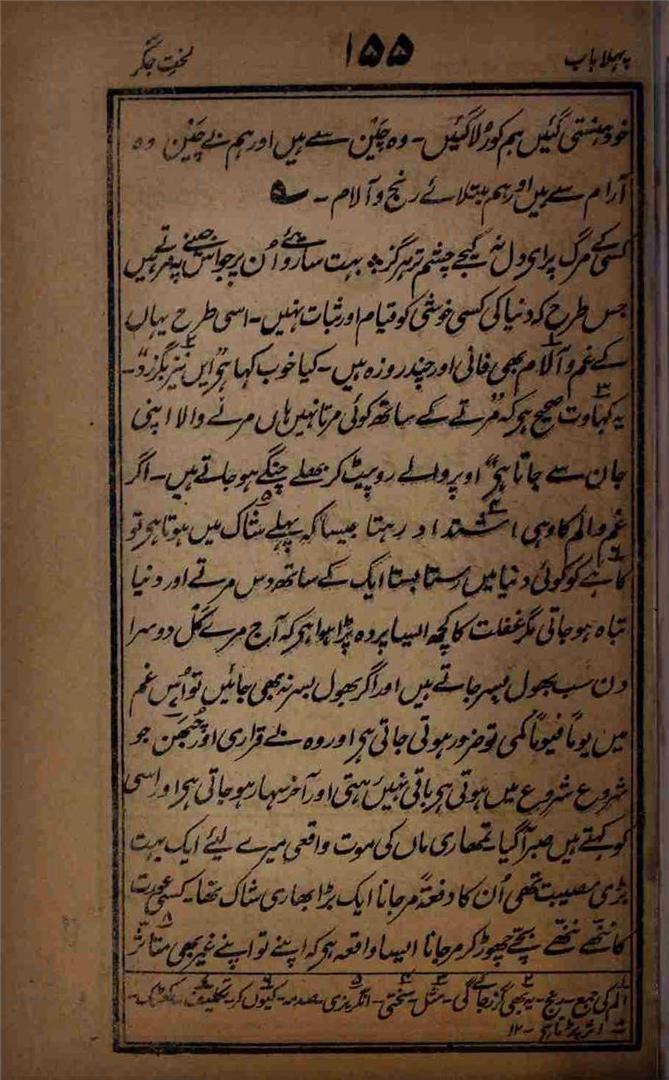 پہلا باب ۱۵۵ لختِ جگر
خود ہنستی گئیں ہم کو رُلا گئیں ۔ وہ چَین سے ہیں اور ہم بے چَین وہ
آرام سے ہیں اور ہم مبتلائے رنج و آلام ۔ ؎
کسی کے مرگ پر ای دل نہ کیجے چشم تر ہرگز ٭ بہت سا روئے اُن پر جو اس جینے پہ مرتے ہیں
جس طرح کہ دنیا کی کسی خوشی کو قیام اور ثبات نہیں ۔ اسی طرح یہاں
کے غم و آلام۱ بھی فانی اور چند روزہ ہیں ۔ کیا خوب کہا ہی "ایں نیز بگزرد۲" ۔
یہ کہاوت۳ صحیح ہی کہ "مرتے کے ساتھ کوئی مرتا نہیں ہاں مرنے والا اپنی
جان سے جاتا ہی" اوپر والے رو پیٹ کر بھلے چنگے ہو جاتے ہیں ۔ اگر
غم و الم کا وہی اشتداد۴ رہتا جیسا کہ پہلے شاک۵ میں ہوتا ہی تو
کاہے۶ کو کوئی دنیا میں رستا بستا ایک کے ساتھ دس مرتے اور دنیا
تباہ ہو جاتی مگر غفلت کا کچھ ایسا پردہ پڑا ہوا ہی کہ آج مرے کل دوسرا
دن سب بھول بسر جاتے ہیں اور اگر بھول بسر نہ بھی جائیں تو اُس غم
میں یوماً فیوماً کمی تو ضرور ہوتی جاتی ہی اور وہ بے قراری اور چُبھن۷ جو
شروع شروع میں ہوتی ہی باقی نہیں رہتی اور آخر سہار ہو جاتی ہی اور اسی
کو کہتے ہیں صبر آگیا تمھاری ماں کی موت واقعی میرے لیئے ایک بہت
بڑی مصیبت تھی اُن کا دفعۃً مر جانا ایک بڑا بھاری شاک تھا ۔ کسی عورت
کا ننھے ننھے بچے چھوڑ کر مر جانا ایسا واقعہ ہی کہ اپنے تو اپنے غیر بھی متاثر۸
۱ الم کی جمع ۔ رنج ۔ ۲ یہ بھی گزر جائے گی ۔ ۳ مثل ۔ ۴ سختی ۔ ۵ انگریزی ۔ صدمہ ۔ ۶ کیوں کر ۔ ۷ تکلیف ۔ کھٹک ۔
۸ اثر پڑنا ۱۲